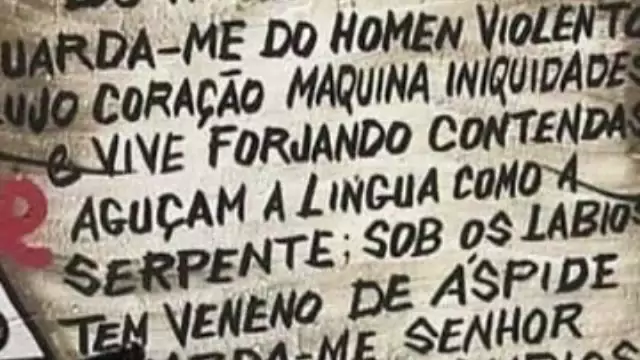 GUARDA-ME DO HOMEN VIOLENTO
CUJO CORAÇÃO MAQUINA INIQUIDADES
E VIVE FORJANDO CONTENDAS
AGUÇAM A LINGUA COMO A
SERPENTE; SOB OS LABIOS
TEM VENENO DE ÁSPIDE
GUARDA-ME SENHOR